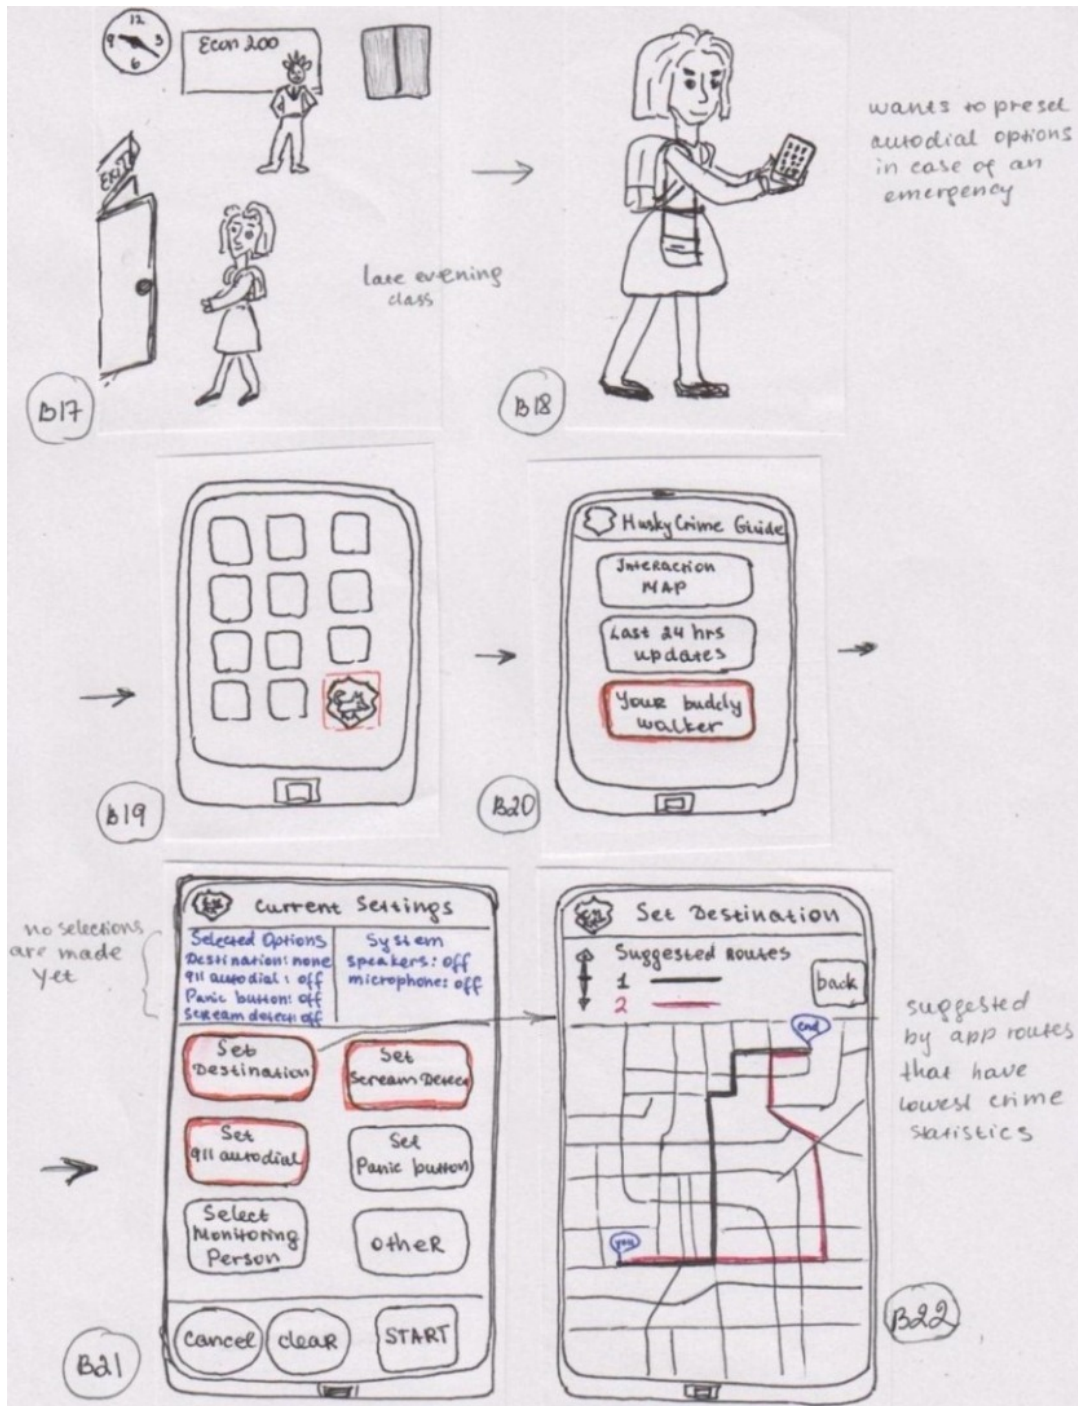 12
9
3
6
Econ 200
EXIT
late evening
class
B17
wants to preset
autodial options
in case of an
emergency
B18
B19
Husky Crime Guide
Interaction
MAP
Last 24 hrs
updates
Your buddy
walker
B20
no selections
are made
yet
Current Settings
Selected Options
Destination: none
911 autodial: off
Panic button: off
Scream detect: off
System
speakers: off
microphone: off
Set
Destination
Set
Scream Detect
Set
911 autodial
Set
Panic button
Select
Monitoring
Person
other
cancel
clear
START
B21
Set Destination
Suggested Routes
1
2
back
end
you
suggested
by app routes
that have
lowest crime
statistics
B22